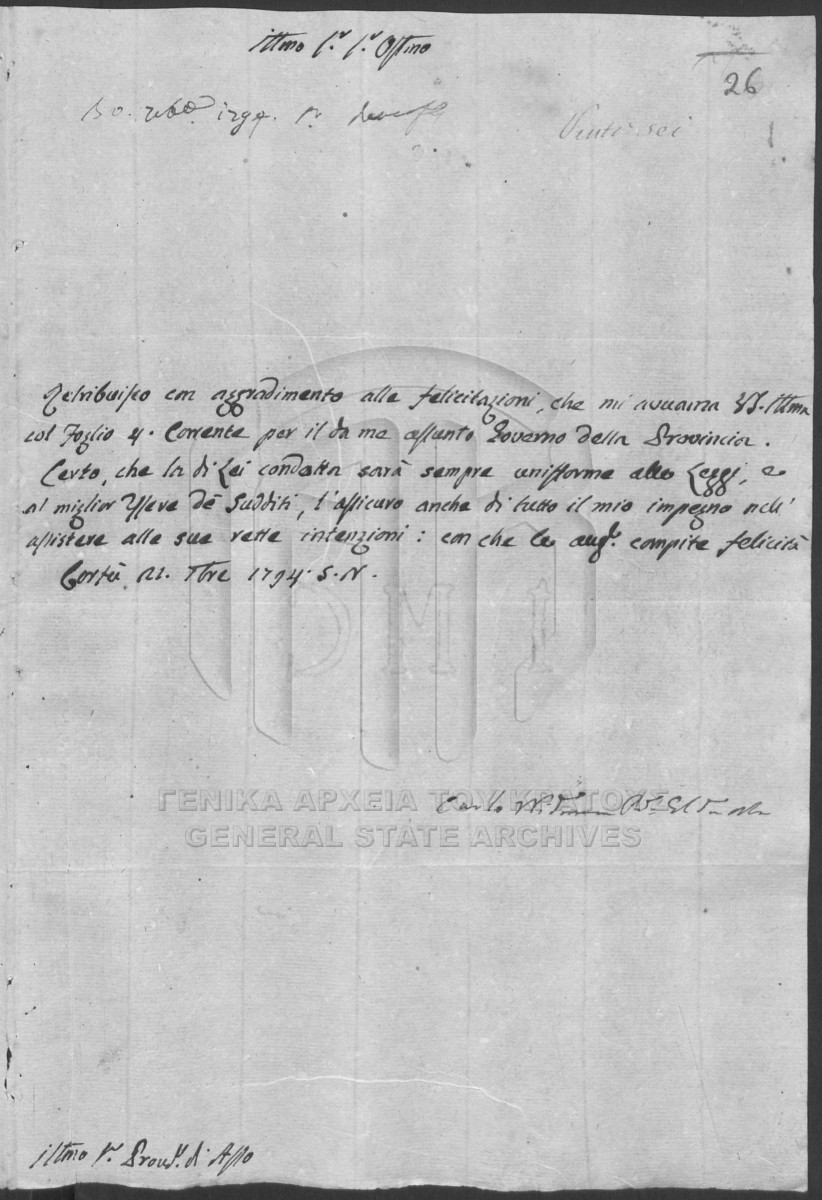 Illmo Sr. Sr. Ossmo
26
30. 7bre 1794. Sr.
Venti sei
Retribuisco con aggradimento alle felicitazioni, che mi avvanza VS. Illma
col Foglio 4. Corrente per il da me assunto Governo della Provincia.
Certo, che la di Lei condotta sarà sempre unifforme alle Leggi, e
al miglior Essere de' Sudditi, l'assicuro anche di tutto il mio impegno nell'
assistere alle sue rette intenzioni: con che le augo. compite felicità
Corfù 21. 7bre 1794. S.N.
ΓΕΝΙΚΑ ΑΡΧΕΙΑ ΤΟΥ ΚΡΑΤΟΥΣ
GENERAL STATE ARCHIVES
DMI
Carlo
Illmo Sr. Provr. di Asso